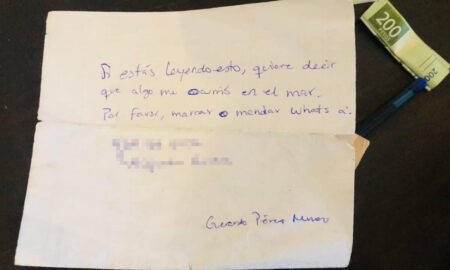 Si estás leyendo esto, quiere decir
que algo me ocurrió en el mar.
Por favor, marcar o mandar Whats a:
Gerardo Pérez
200
200